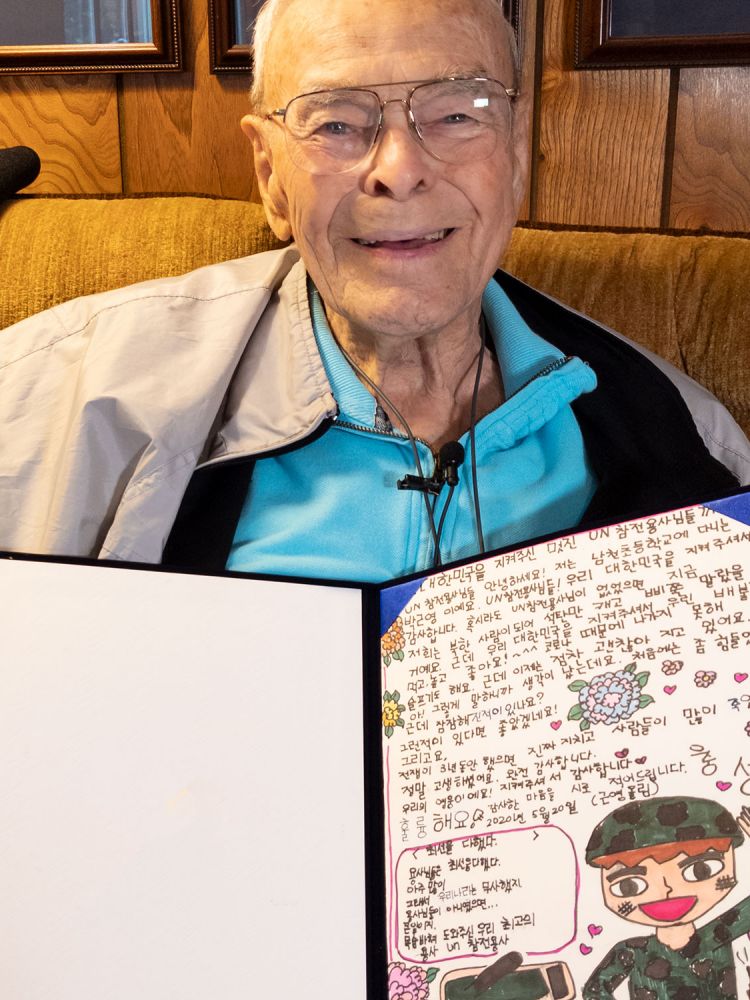 대한민국을 지켜주신 멋진 UN 참전용사님들께
UN 참전용사님들 안녕하세요! 저는 남천초등학교에 다니는
박근영 이에요. UN참전용사님들! 우리 대한민국을 지켜주셔서
감사합니다. 혹시라도 UN참전용사님이 없었으면 지금
저희는 북한 사람이 되어 석탄만 캐고
거예요. 근데 우리 대한민국을 지켜주셔서 우린 배불
먹고 놀고 좋아요! ^^ 코로나 때문에 나가지 못해
슬프기도 해요. 근데 이제는 점차 괜찮아 지고 있어요.
아! 그렇게 말하니까 생각이 났는데요. 처음에는 좀 힘들었
근데 잠잠해 진적이 있나요?
그런적이 있다면 좋았겠네요!
그리고요, 진짜 지치고 사람들이 많이
전쟁이 3년동안 했으면
정말 고생하셨어요. 완전 감사합니다.
우리의 영웅이에요! 지켜주셔서 감사합니다
감사한 마음을 시로 적어드립니다.
훌륭해요 2020년 5월 20일 (근영올림)
< 최선을 다했다. >
용사님들은 최선을다했다.
아주 많이
그래서 우리나라는 무사했지
용사님들이 아니였으면...
도와주신 우리 최고의
용사 un 참전용사